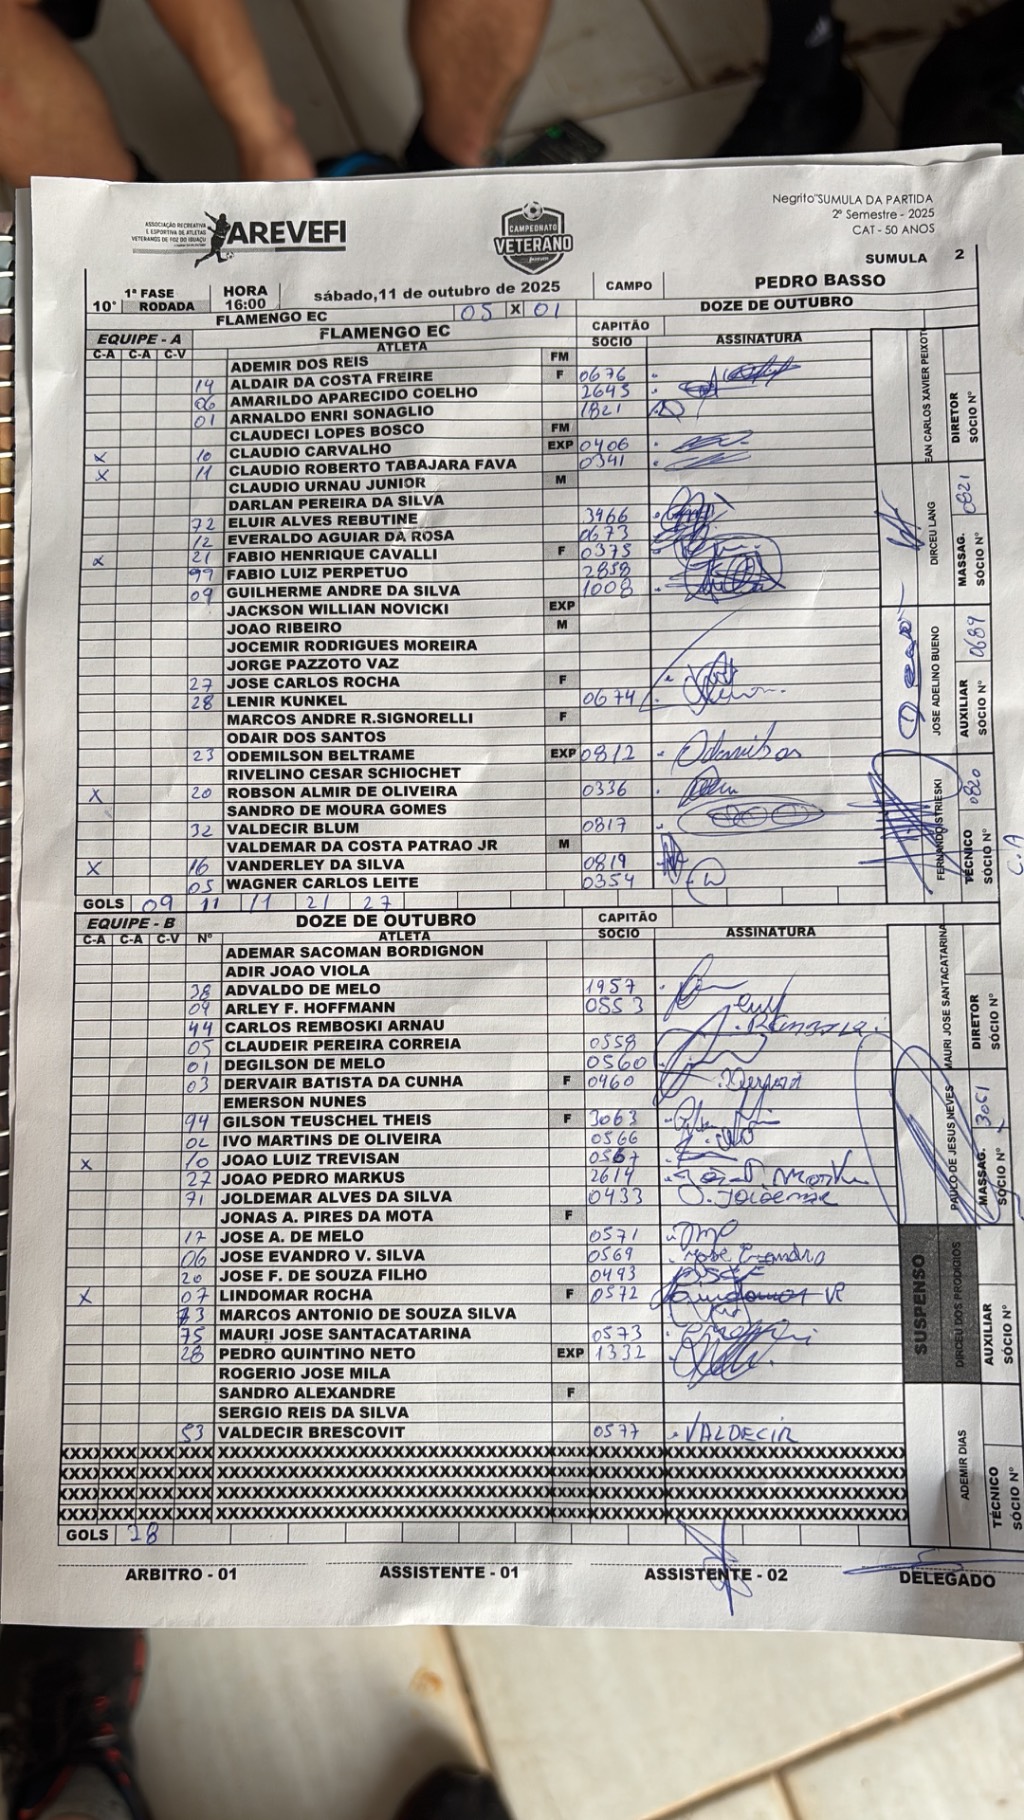 ASSOCIAÇÃO RECREATIVA
E ESPORTIVA DE ATLETAS
VETERANOS DE FOZ DO IGUAÇU
AREVEFI
CAMPEONATO
VETERANO
Negrito"SUMULA DA PARTIDA
2º Semestre - 2025
CAT - 50 ANOS
SUMULA 2
1ª FASE HORA sábado,11 de outubro de 2025 CAMPO PEDRO BASSO
10ª RODADA 16:00
FLAMENGO EC 05 X 01 DOZE DE OUTUBRO
EQUIPE - A FLAMENGO EC CAPITÃO
C-A C-A C-V ATLETA SÓCIO ASSINATURA
ADEMIR DOS REIS FM
14 ALDAIR DA COSTA FREIRE F 0676
06 AMARILDO APARECIDO COELHO 2645
01 ARNALDO ENRI SONAGLIO 1821
CLAUDECI LOPES BOSCO FM
X 10 CLAUDIO CARVALHO EXP 0406
X 11 CLAUDIO ROBERTO TABAJARA FAVA 0341
CLAUDIO URNAU JUNIOR M
DARLAN PEREIRA DA SILVA
72 ELUIR ALVES REBUTINE 3966
12 EVERALDO AGUIAR DA ROSA 0673
X 21 FABIO HENRIQUE CAVALLI F 0375
99 FABIO LUIZ PERPETUO 2858
09 GUILHERME ANDRE DA SILVA 1008
JACKSON WILLIAN NOVICKI EXP
JOAO RIBEIRO M
JOCEMIR RODRIGUES MOREIRA
JORGE PAZZOTO VAZ
27 JOSE CARLOS ROCHA F
28 LENIR KUNKEL 0674
MARCOS ANDRE R.SIGNORELLI F
ODAIR DOS SANTOS
23 ODEMILSON BELTRAME EXP 0812
RIVELINO CESAR SCHIOCHET
X 20 ROBSON ALMIR DE OLIVEIRA 0336
SANDRO DE MOURA GOMES
32 VALDECIR BLUM 0817
VALDEMAR DA COSTA PATRAO JR M
X 16 VANDERLEY DA SILVA 0819
05 WAGNER CARLOS LEITE 0354
GOLS 09 11 11 21 27
JEAN CARLOS XAVIER PEIXOTO
DIRETOR
SÓCIO Nº
DIRCEU LANG
MASSAG. 0821
SÓCIO Nº
JOSE ADELINO BUENO
AUXILIAR 0689
SÓCIO Nº
TÉCNICO 0820
SÓCIO Nº
C.A
EQUIPE - B DOZE DE OUTUBRO CAPITÃO
C-A C-A C-V Nº ATLETA SOCIO ASSINATURA
ADEMAR SACOMAN BORDIGNON
ADIR JOAO VIOLA
38 ADVALDO DE MELO 1957
09 ARLEY F. HOFFMANN 0553
44 CARLOS REMBOSKI ARNAU
05 CLAUDEIR PEREIRA CORREIA 0558
01 DEGILSON DE MELO 0560
03 DERVAIR BATISTA DA CUNHA F 0460
EMERSON NUNES
94 GILSON TEUSCHEL THEIS F 3063
02 IVO MARTINS DE OLIVEIRA 0566
X 10 JOAO LUIZ TREVISAN 0567
27 JOAO PEDRO MARKUS 2614
71 JOLDEMAR ALVES DA SILVA 0433
JONAS A. PIRES DA MOTA F
17 JOSE A. DE MELO 0571
06 JOSE EVANDRO V. SILVA 0569 José Evandro
20 JOSE F. DE SOUZA FILHO 0493
X 07 LINDOMAR ROCHA F 0572
73 MARCOS ANTONIO DE SOUZA SILVA
75 MAURI JOSE SANTACATARINA 0573
28 PEDRO QUINTINO NETO EXP 1332
ROGERIO JOSE MILA
SANDRO ALEXANDRE F
SERGIO REIS DA SILVA
53 VALDECIR BRESCOVIT 0577 VALDECIR
XXXXXXXXXXXXXXXXXXXXXXXXXXXXXXXXXXXXXXXXXXXXXXXX
XXXXXXXXXXXXXXXXXXXXXXXXXXXXXXXXXXXXXXXXXXXXXXXX
XXXXXXXXXXXXXXXXXXXXXXXXXXXXXXXXXXXXXXXXXXXXXXXX
XXXXXXXXXXXXXXXXXXXXXXXXXXXXXXXXXXXXXXXXXXXXXXXX
GOLS 28
MAURI JOSE SANTACATARINA
DIRETOR
SÓCIO Nº
PAULO DE JESUS NEVES
MASSAG. 3061
SÓCIO Nº
SUSPENSO
DIRCEU DOS PRODIGIOS
AUXILIAR
SÓCIO Nº
ADEMIR DIAS
TÉCNICO
SÓCIO Nº
ARBITRO - 01 ASSISTENTE - 01 ASSISTENTE - 02 DELEGADO